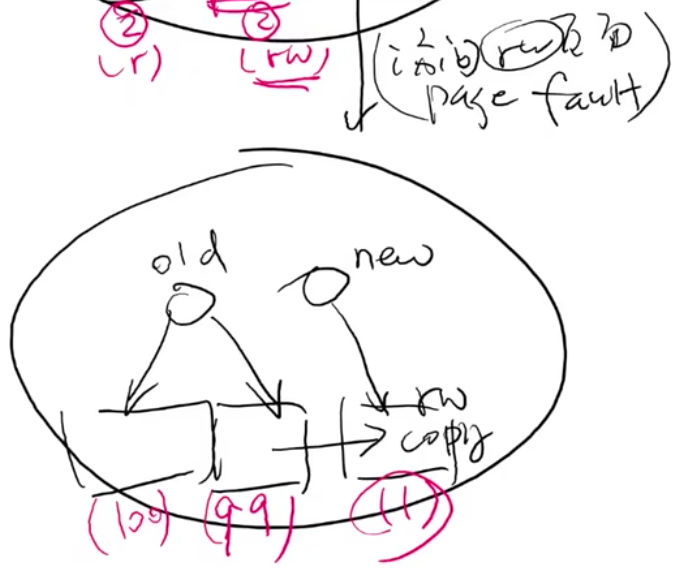 ② ②
(r) (rw)
page fault)
old new
rw
copy
(100) (99) (11)